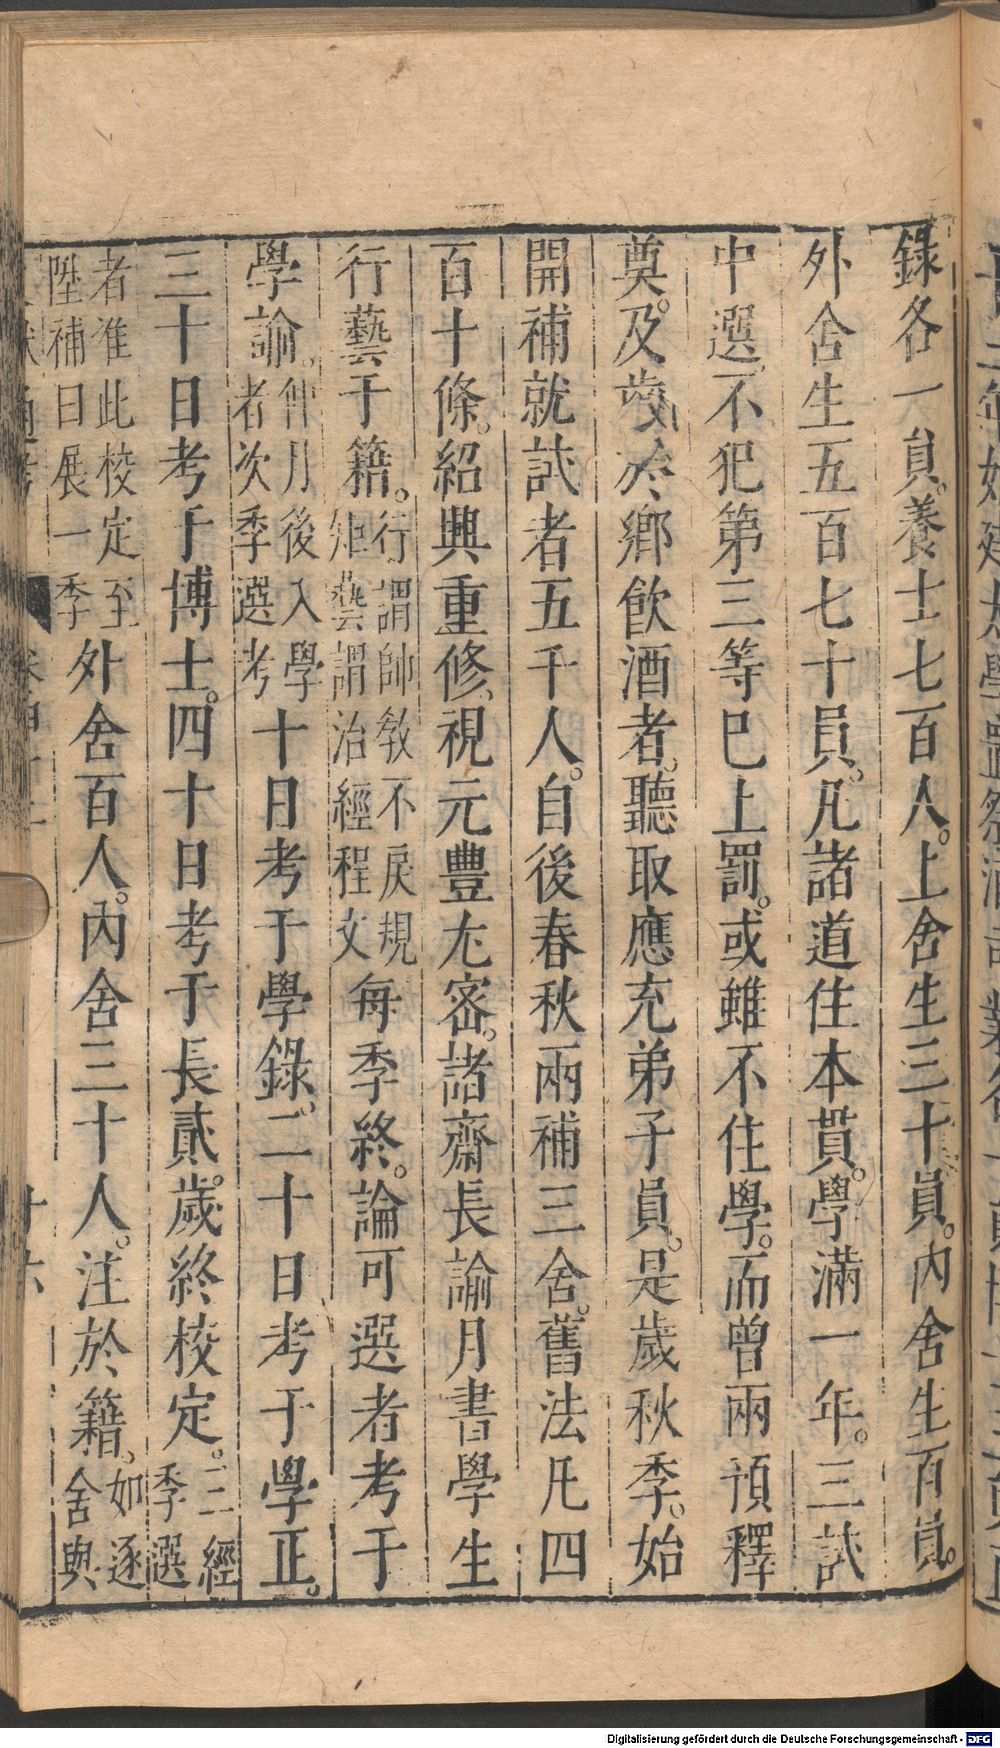 錄各一員。養士七百人。上舍生三十員。內舍生百員。
外舍生五百七十員。凡諸道住本貫。學滿一年。三試
中選。不犯第三等巳上罰。或雖不住學。而曾兩預釋
奠。及齒於鄉飲酒者。聽取應充弟子員。是歲秋季。始
開補就試者五千人。自後春秋兩補三舍。舊法凡四
百十條。紹興重修、視元豐尤密。諸齋長諭月書學生
行藝于籍。行謂帥教不戾規矩藝謂治經程文每季終。論可選者考于
學諭。仲月後入學者次季選考十日考于學錄。二十日考于學正。
三十日考于博士。四十日考于長貳。歲終校定。二經季選
者准此校定至陞補日展一季外舍百人。內舍三十人。注於籍。如逐舍與
Digitalisierung gefördert durch die Deutsche Forschungsgemeinschaft - DFG